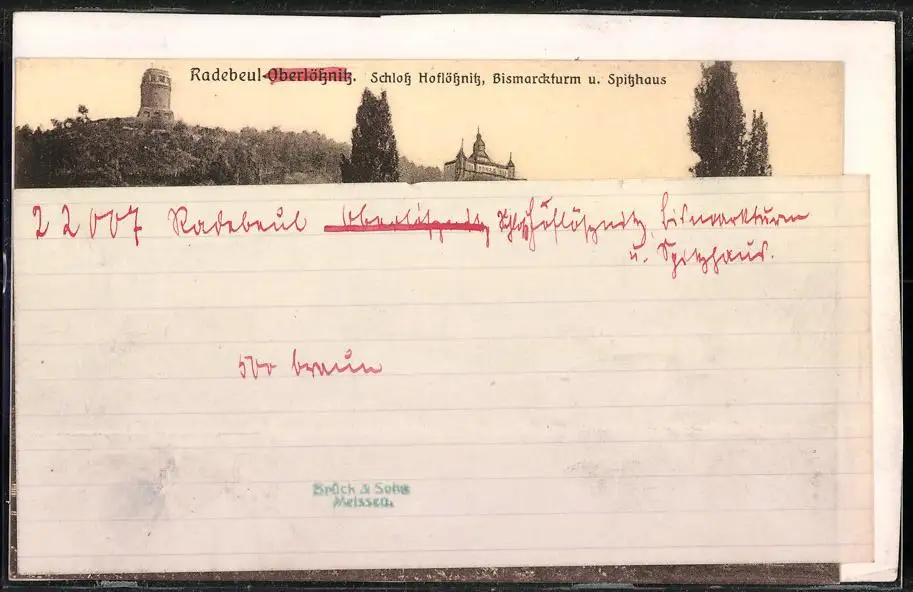 Radebeul-Oberlößnitz. Schloß Hoflößnitz, Bismarckturm u. Spitzhaus
22007 Radebeul Oberlößnitz Schloß Hoflößnitz, Bismarckturm
u. Spitzhaus.
500 braun
Brück & Sohn
Meissen.